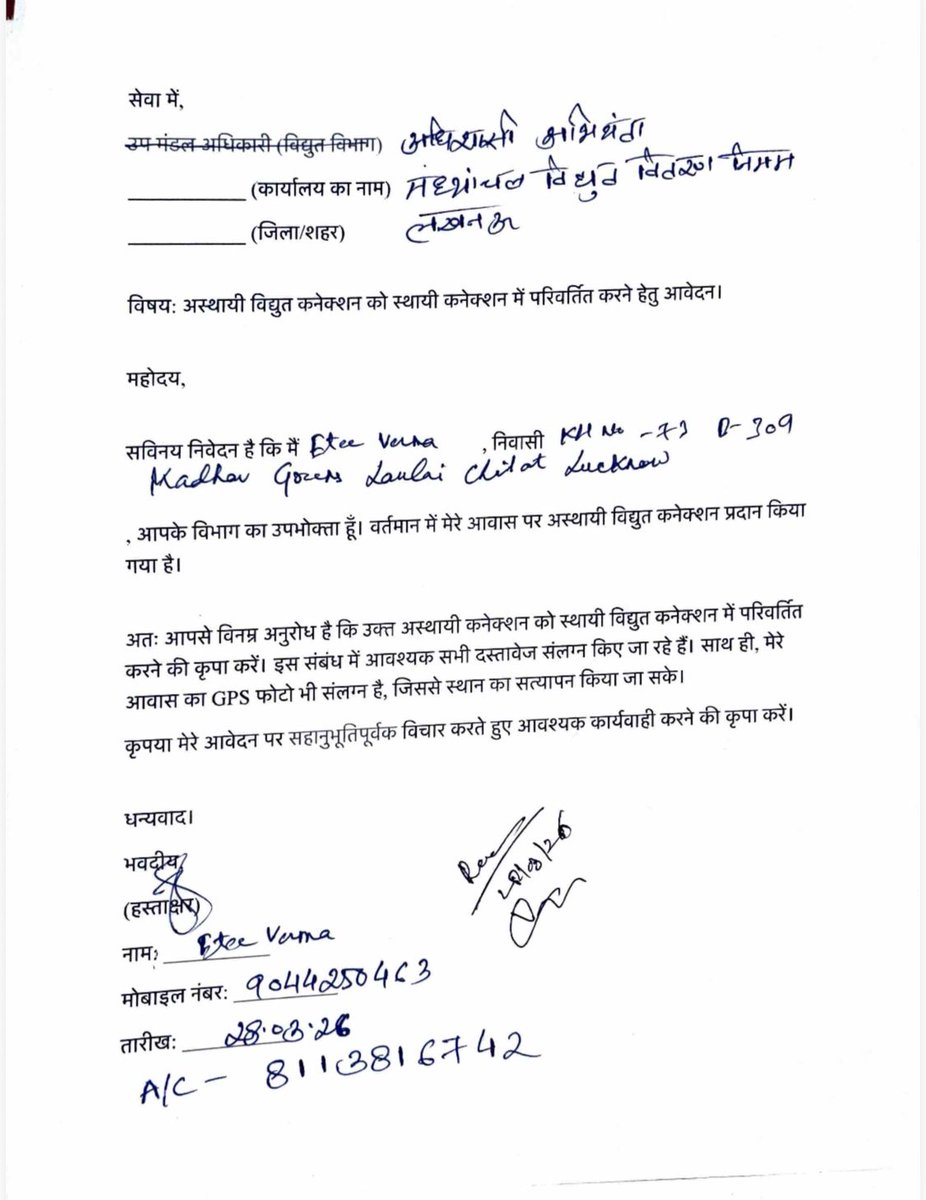 सेवा में,
उप मंडल अधिकारी (विद्युत विभाग) अधिशासी अभियंता
__________ (कार्यालय का नाम) मध्यांचल विद्युत वितरण निगम
__________ (जिला/शहर) लखनऊ
विषय: अस्थायी विद्युत कनेक्शन को स्थायी कनेक्शन में परिवर्तित करने हेतु आवेदन।
महोदय,
सविनय निवेदन है कि मैं Etee Verma , निवासी KH No - 73 D-309
Madhav Greens Laulai Chihat Lucknow
, आपके विभाग का उपभोक्ता हूँ। वर्तमान में मेरे आवास पर अस्थायी विद्युत कनेक्शन प्रदान किया
गया है।
अतः आपसे विनम्र अनुरोध है कि उक्त अस्थायी कनेक्शन को स्थायी विद्युत कनेक्शन में परिवर्तित
करने की कृपा करें। इस संबंध में आवश्यक सभी दस्तावेज संलग्न किए जा रहे हैं। साथ ही, मेरे
आवास का GPS फोटो भी संलग्न है, जिससे स्थान का सत्यापन किया जा सके।
कृपया मेरे आवेदन पर सहानुभूतिपूर्वक विचार करते हुए आवश्यक कार्यवाही करने की कृपा करें।
धन्यवाद।
भवदीय,
(हस्ताक्षर)
नाम: Etee Verma
मोबाइल नंबर: 9044250463
तारीख: 28.03.26
A/C - 8113816742